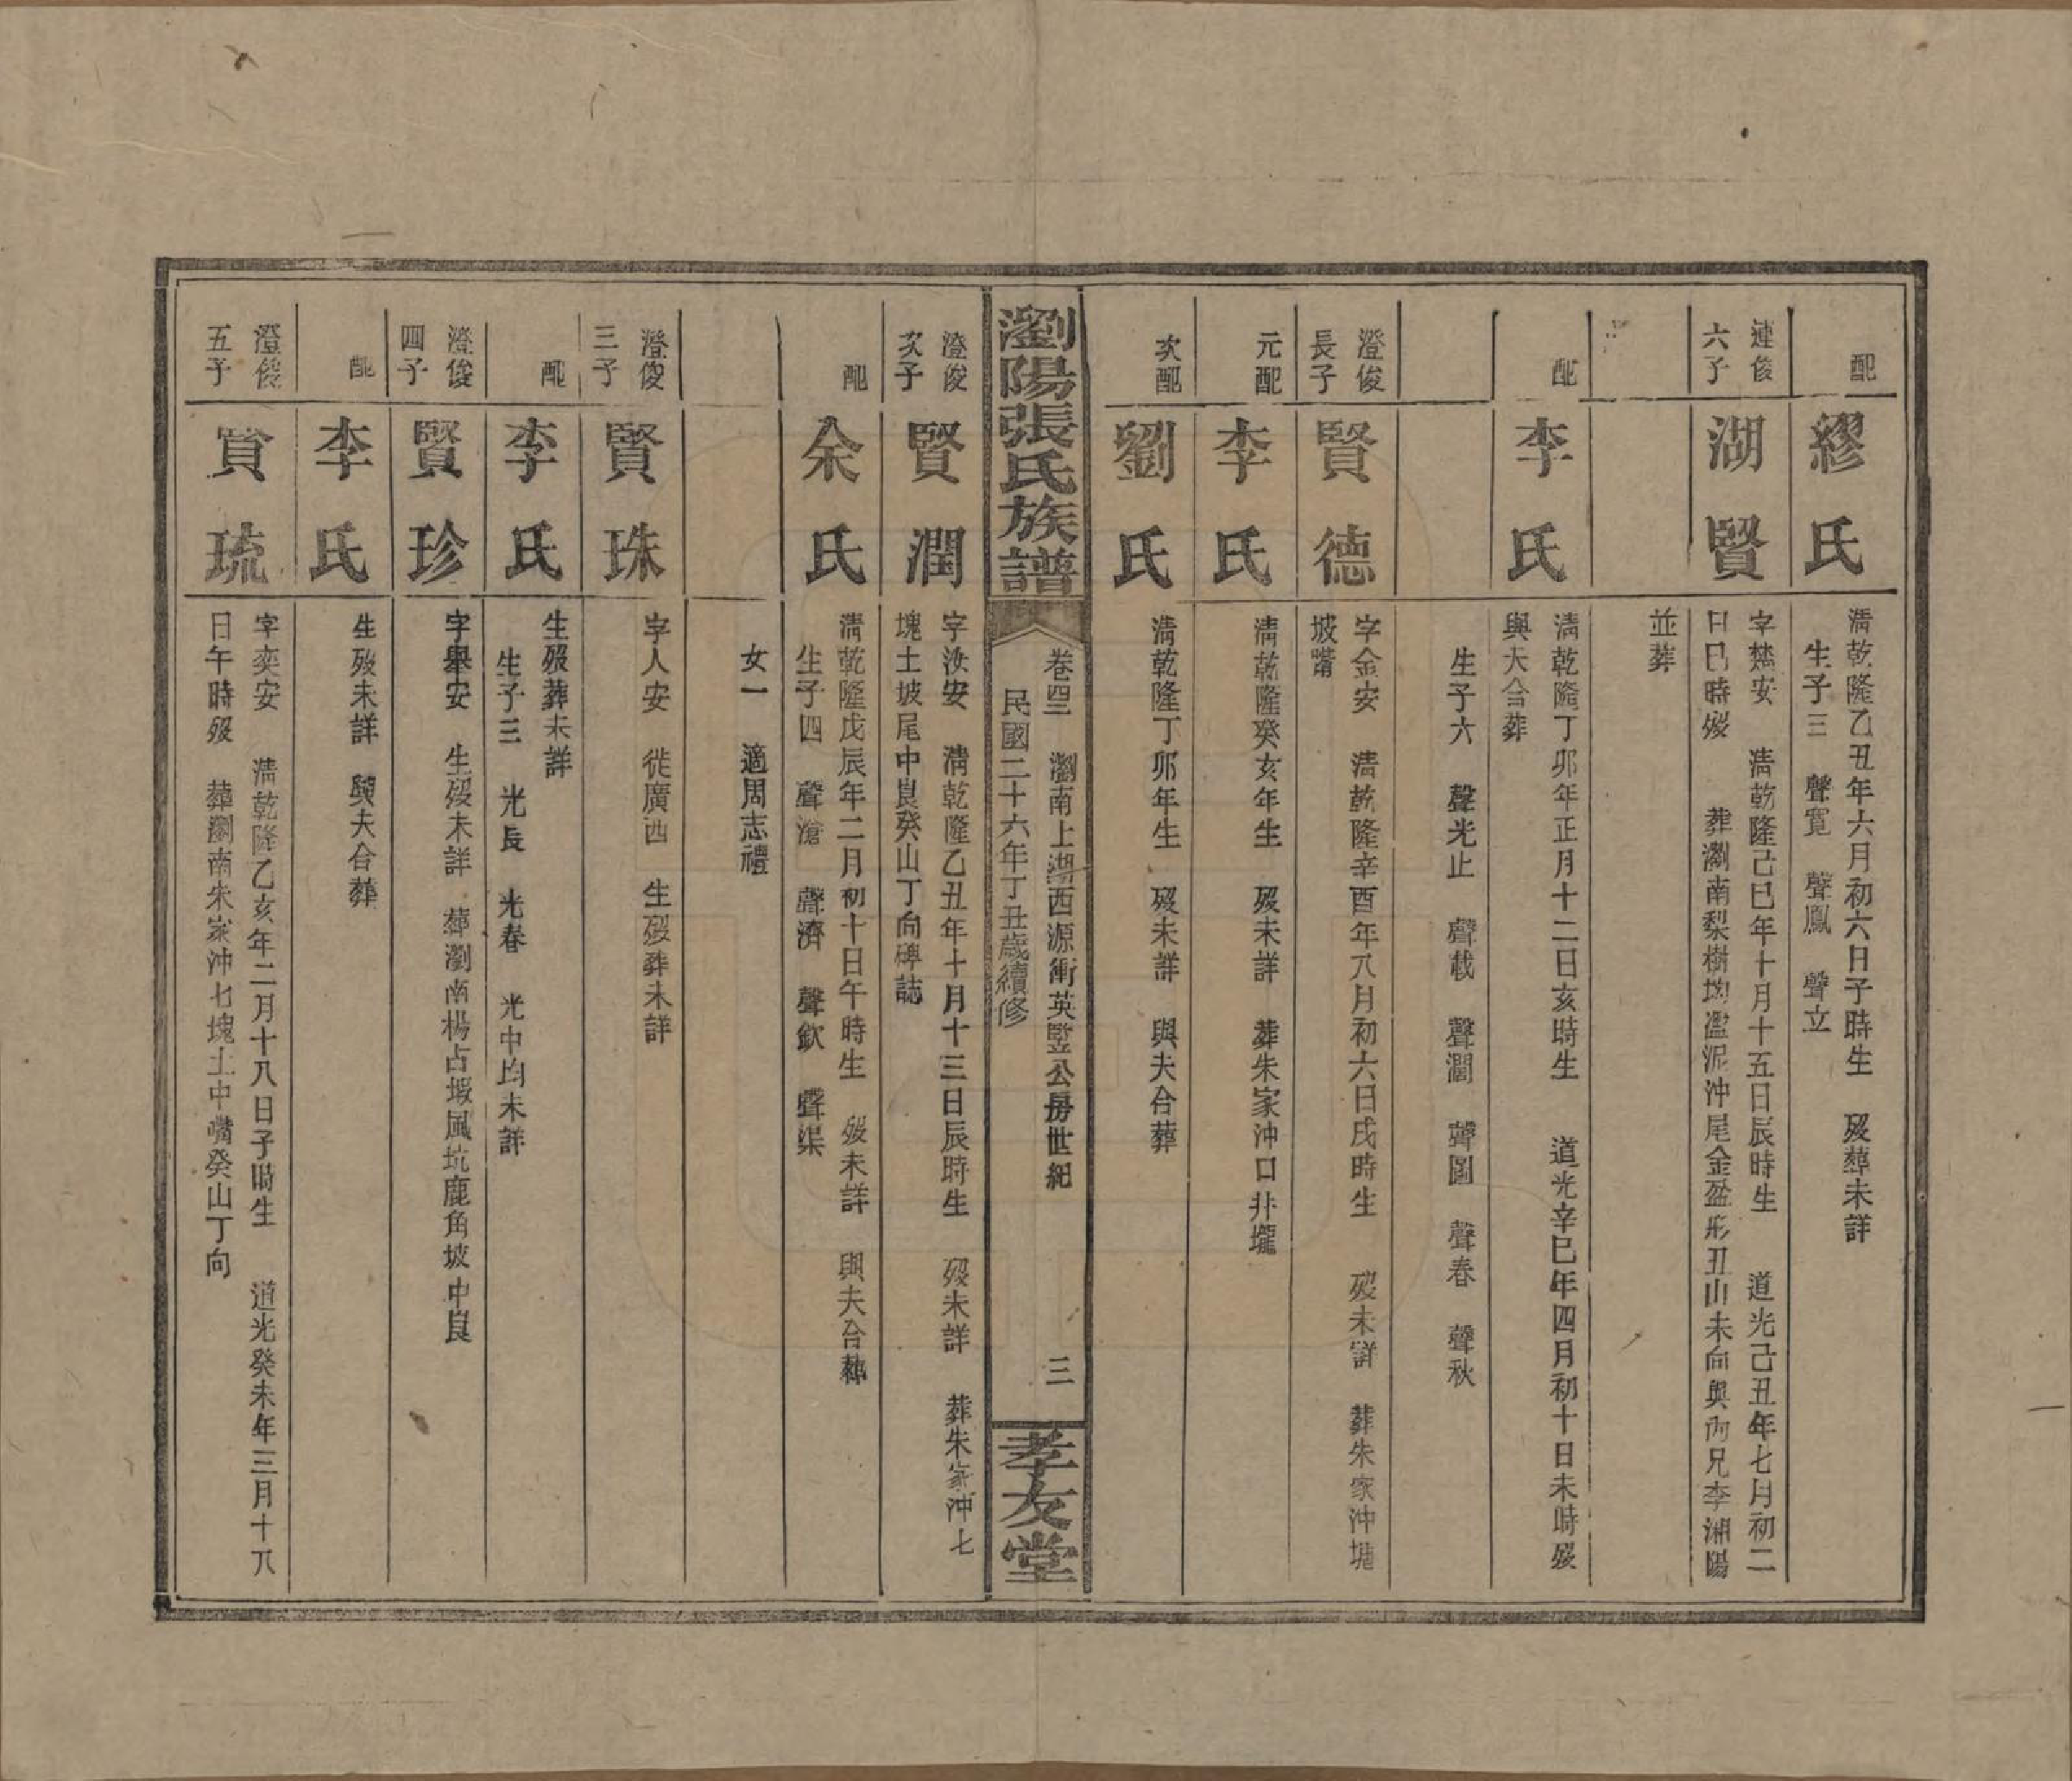 配
繆氏
清乾隆乙丑年六月初六日子時生　歿葬未詳
生子三　聲寬　聲鳳　聲立
連俊
六子
湖賢
字楚安　清乾隆己巳年十月十五日辰時生　道光己丑年七月初二
日巳時歿　葬瀏南梨樹坳濫泥冲尾金盆形丑山未向與兩兄李湘陽
並葬
配
李氏
清乾隆丁卯年正月十二日亥時生　道光辛巳年四月初十日未時歿
與夫合葬
生子六　聲光止　聲載　聲濶　聲圖　聲春　聲秋
澄俊
長子
賢德
字金安　清乾隆辛酉年八月初六日戌時生　歿未詳　葬朱家沖塘
坡嘴
元配
李氏
清乾隆癸亥年生　歿未詳　葬朱家沖口井壠
次配
劉氏
清乾隆丁卯年生　歿未詳　與夫合葬
瀏陽張氏族譜
卷四三　瀏南上湖西源衝英竪公房世紀　三
民國二十六年丁丑歲續修
孝友堂
澄俊
次子
賢潤
字汝安　清乾隆乙丑年十月十三日辰時生　歿未詳　葬朱家沖七
塊土坡尾中艮癸山丁向碑誌
配
余氏
清乾隆戊辰年二月初十日午時生　歿未詳　與夫合葬
生子四　聲滄　聲濟　聲欽　聲渠
女一　適周志禮
澄俊
三子
賢珠
字人安　徙廣西　生歿葬未詳
配
李氏
生歿葬未詳
生子三　光長　光春　光中均未詳
澄俊
四子
賢珍
字舉安　生歿未詳　葬瀏南楊占塅風坑鹿角坡中艮
配
李氏
生歿未詳　與夫合葬
澄俊
五子
賢琉
字奕安　清乾隆乙亥年二月十八日子時生　道光癸未年三月十八
日午時歿　葬瀏南朱家沖七塊土中嘴癸山丁向